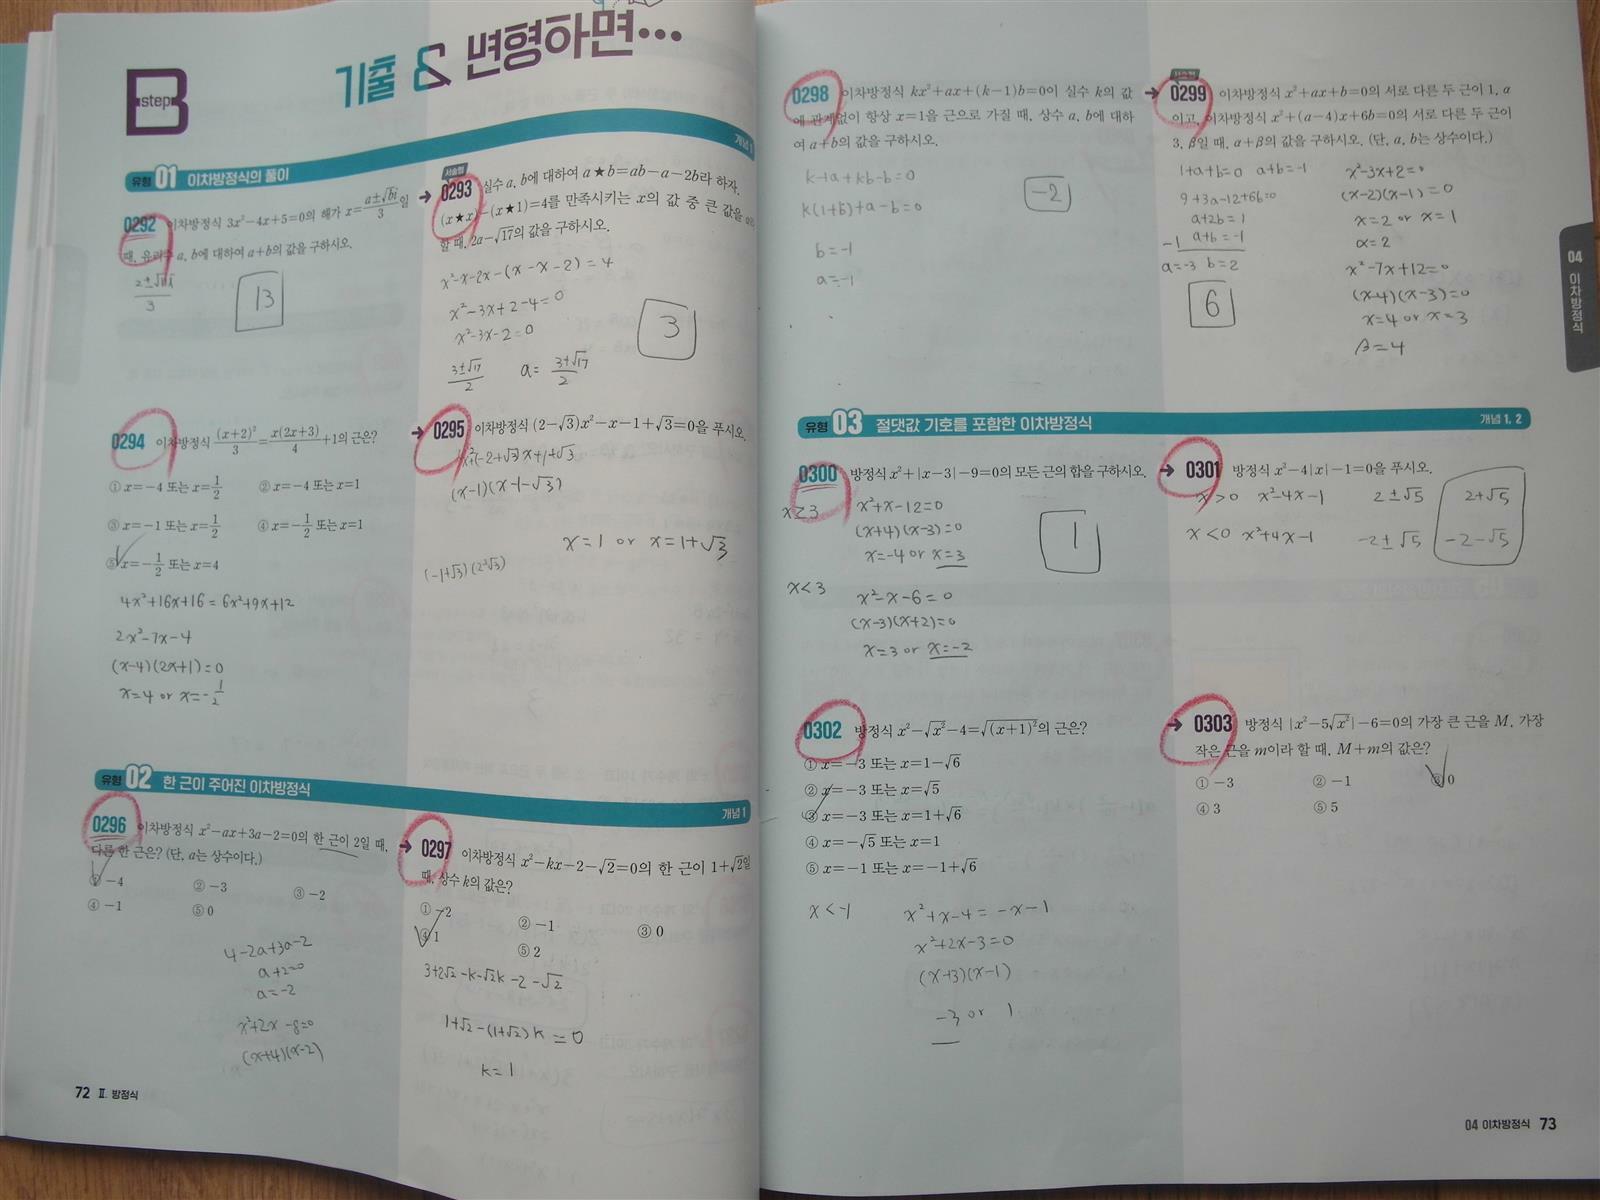 B step
기출 & 변형하면…
개념 1
유형 01 이차방정식의 풀이
0292 이차방정식 3x²-4x+5=0의 해가 x=(a±√bi)/3일
때, 유리수 a, b에 대하여 a+b의 값을 구하시오.
(2±√11i)/3
13
서술형
→ 0293 실수 a, b에 대하여 a★b=ab-a-2b라 하자.
(x★x)-(x★1)=4를 만족시키는 x의 값 중 큰 값을 a라
할 때, 2a-√17의 값을 구하시오.
x²-x-2x-(x-x-2)=4
x²-3x+2-4=0
x²-3x-2=0
(3±√17)/2 a=(3±√17)/2
3
0294 이차방정식 (x+2)²/3=x(2x+3)/4+1의 근은?
① x=-4 또는 x=1/2 ② x=-4 또는 x=1
③ x=-1 또는 x=1/2 ④ x=-1/2 또는 x=1
⑤ x=-1/2 또는 x=4
4x²+16x+16=6x²+9x+12
2x²-7x-4
(x-4)(2x+1)=0
x=4 or x=-1/2
→ 0295 이차방정식 (2-√3)x²-x-1+√3=0을 푸시오.
x²+(-2+√3)x+1+√3
(x-1)(x-1-√3)
x=1 or x=1+√3
유형 02 한 근이 주어진 이차방정식
개념 1
0296 이차방정식 x²-ax+3a-2=0의 한 근이 2일 때,
다른 한 근은? (단, a는 상수이다.)
① -4 ② -3 ③ -2
④ -1 ⑤ 0
4-2a+3a-2
a+2=0
a=-2
x²+2x-8=0
(x+4)(x-2)
→ 0297 이차방정식 x²-kx-2-√2=0의 한 근이 1+√2일
때, 상수 k의 값은?
① -2 ② -1 ③ 0
④ 1 ⑤ 2
3+2√2-k-√2k-2-√2
1+√2-(1+√2)k=0
k=1
72 Ⅱ. 방정식
0298 이차방정식 kx²+ax+(k-1)b=0이 실수 k의 값
에 관계없이 항상 x=1을 근으로 가질 때, 상수 a, b에 대하
여 a+b의 값을 구하시오.
k+a+kb-b=0
k(1+b)+a-b=0
b=-1
a=-1
-2
서술형
→ 0299 이차방정식 x²+ax+b=0의 서로 다른 두 근이 1, α
이고, 이차방정식 x²+(a-4)x+6b=0의 서로 다른 두 근이
3, β일 때, α+β의 값을 구하시오. (단, a, b는 상수이다.)
1+a+b=0 a+b=-1
9+3a-12+6b=0
a+2b=1
-1 a+b=-1
a=-3 b=2
6
x²-3x+2=0
(x-2)(x-1)=0
x=2 or x=1
α=2
x²-7x+12=0
(x-4)(x-3)=0
x=4 or x=3
β=4
04 이차방정식
유형 03 절댓값 기호를 포함한 이차방정식
개념 1, 2
0300 방정식 x²+|x-3|-9=0의 모든 근의 합을 구하시오.
x≥3 x²+x-12=0
(x+4)(x-3)=0
x=-4 or x=3
1
x<3 x²-x-6=0
(x-3)(x+2)=0
x=3 or x=-2
→ 0301 방정식 x²-4|x|-1=0을 푸시오.
x>0 x²-4x-1 2±√5 2+√5
x<0 x²+4x-1 -2±√5 -2-√5
0302 방정식 x²-√x²-4=√(x+1)²의 근은?
① x=-3 또는 x=1-√6
② x=-3 또는 x=√5
③ x=-3 또는 x=1+√6
④ x=-√5 또는 x=1
⑤ x=-1 또는 x=-1+√6
x<-1 x²+x-4=-x-1
x²+2x-3=0
(x+3)(x-1)
-3 or 1
→ 0303 방정식 |x²-5√x²|-6=0의 가장 큰 근을 M, 가장
작은 근을 m이라 할 때, M+m의 값은?
① -3 ② -1 ③ 0
④ 3 ⑤ 5
04 이차방정식 73